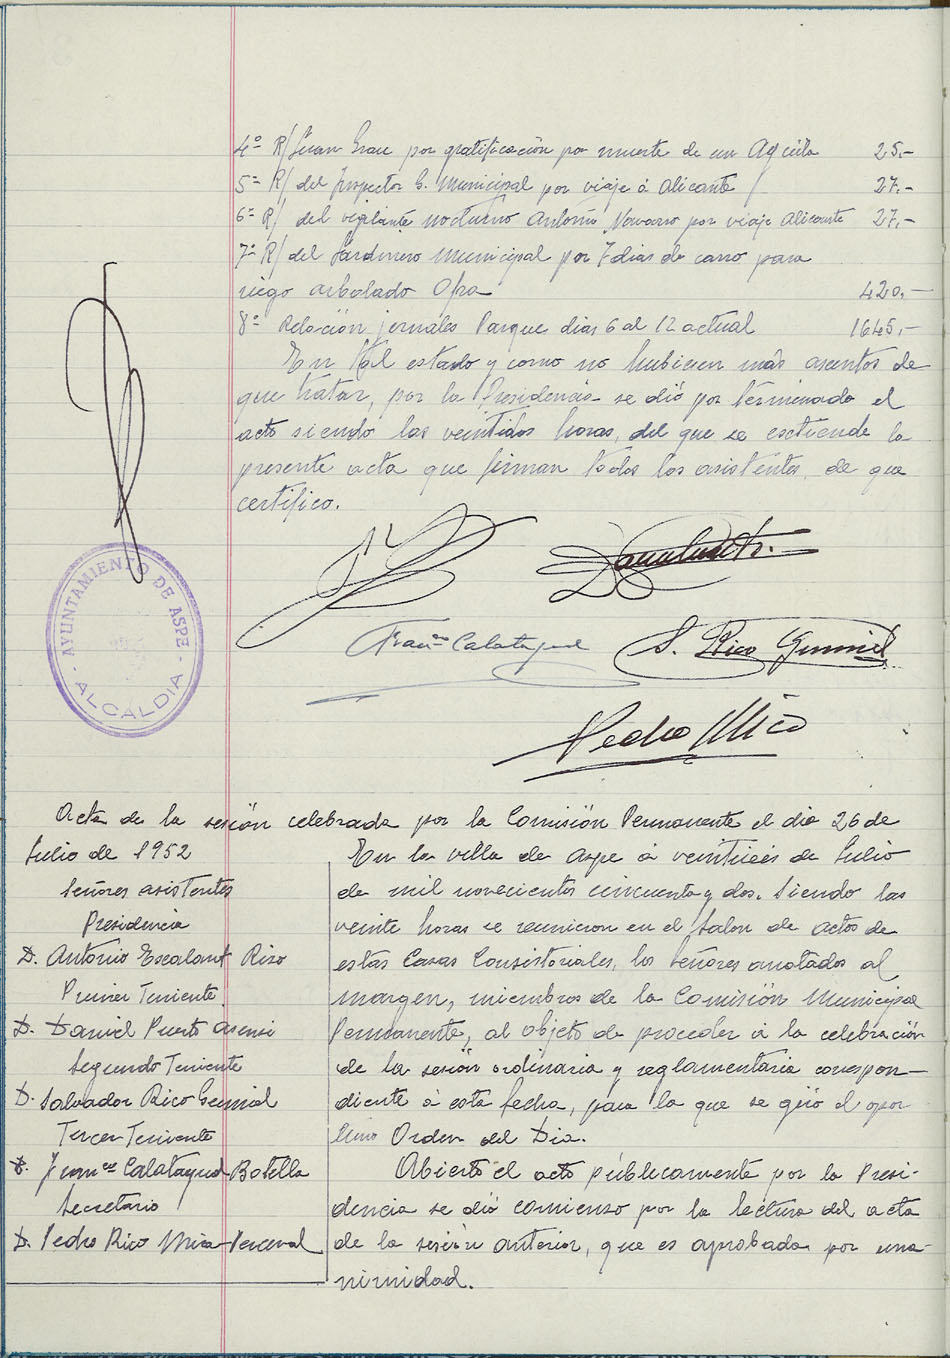 4º R/ Juan Grau por gratificación por muerte de un Aguila 25,-
5º R/ del Inspector G. Municipal por viaje á Alicante / 27,-
6º R/ del vigilante nocturno Antonio Navarro por viaje Alicante 27,-
7º R/ del Jardinero Municipal por 7 dias de carro para
riego arbolado Ofra 420,-
8º Relación jornales Parque dias 6 al 12 actual 1645,-
En tal estado y como no hubiesen más asuntos de
que tratar, por la Presidencia se dió por terminado el
acto siendo las veintidos horas, del que se extiende la
presente acta que firman todos los asistentes, de que
certifico.
AYUNTAMIENTO DE ASPE
ALCALDIA
Franco Calatayud
S. Rico Gumiel
Pedro Rico
Acta de la sesión celebrada por la Comisión Permanente el dia 26 de
Julio de 1952
Señores asistentes
Presidencia
D. Antonio Escalant Rizo
Primer Teniente
D. Daniel Puerto Asensi
Segundo Teniente
D. Salvador Rico Gumiel
Tercer Teniente
D. Franco Calatayud Botella
Secretario
D. Pedro Rico Mira-Perceval
En la villa de Aspe á veintiseis de Julio
de mil novecientos cincuenta y dos. Siendo las
veinte horas se reunieron en el Salon de actos de
estas Casas Consistoriales, los señores anotados al
margen, miembros de la Comisión Municipal
Permanente, al objeto de proceder á la celebración
de la sesión ordinaria y reglamentaria correspon-
diente á esta fecha, para la que se giró el opor
tuno Orden del Dia.
Abierto el acto públicamente por la Presi-
dencia se dió comienzo por la lectura del acta
de la sesión anterior, que es aprobada por una-
nimidad.